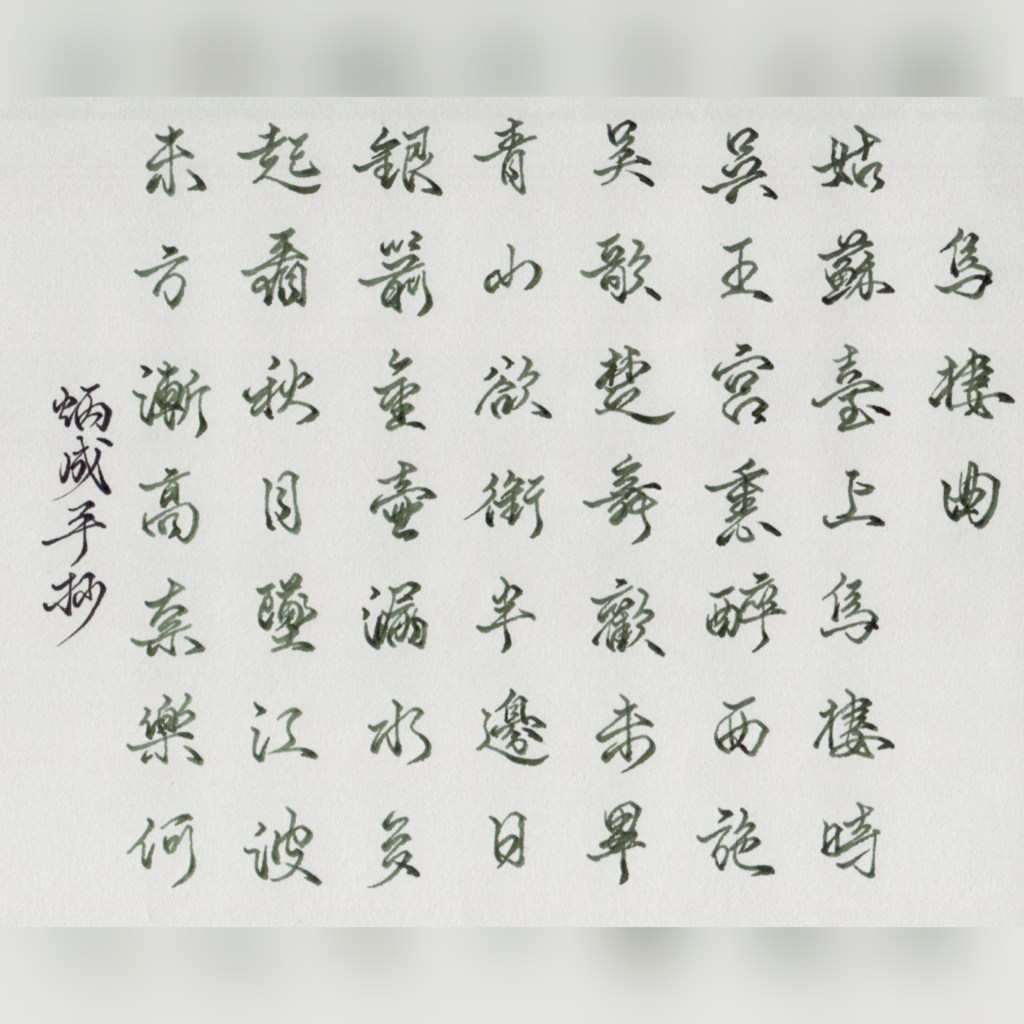 烏棲曲
姑蘇臺上烏棲時
吳王宮裏醉西施
吳歌楚舞歡未畢
青山欲銜半邊日
銀箭金壺漏水多
起看秋月墜江波
東方漸高奈樂何
炳成手抄